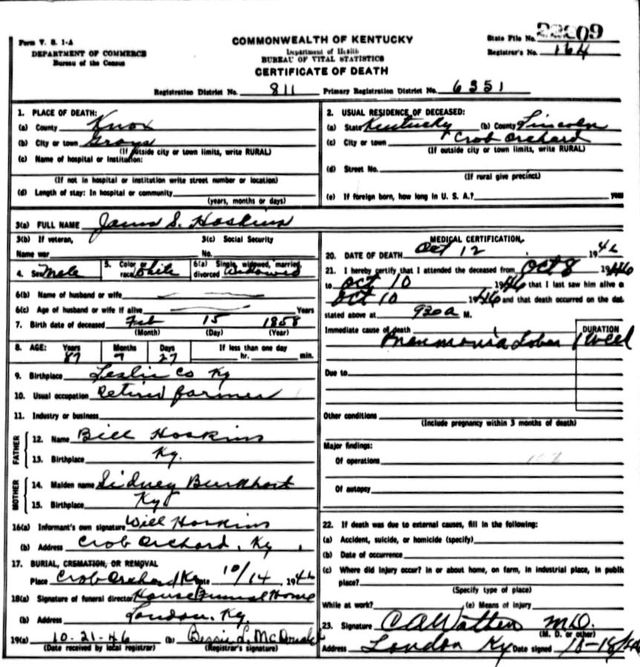 Form V. S. 1-A
DEPARTMENT OF COMMERCE
Bureau of the Census
COMMONWEALTH OF KENTUCKY
Department of Health
BUREAU OF VITAL STATISTICS
CERTIFICATE OF DEATH
State File No.
Registrar's No. 164
Registration District No. 811 Primary Registration District No. 6351
1. PLACE OF DEATH:
(a) County Knox
(b) City or town Grays
(If outside city or town limits, write RURAL)
(c) Name of hospital or institution:
(If not in hospital or institution write street number or location)
(d) Length of stay: In hospital or community
(years, months or days)
2. USUAL RESIDENCE OF DECEASED:
(a) State Kentucky (b) County Lincoln
(c) City or town Crob Orchard
(If outside city or town limits, write RURAL)
(d) Street No.
(If rural give precinct)
(e) If foreign born, how long in U. S. A.? years
3(a) FULL NAME S. Hoskins
3(b) If veteran, 3(c) Social Security
Name war No.
4. Sex Male 5. Color or race White 6(a) Single, widowed, married, divorced Widowed
6(b) Name of husband or wife
6(c) Age of husband or wife if alive Years
7. Birth date of deceased Feb 15 1858
(Month) (Day) (Year)
8. AGE: Years Months Days If less than one day
87 7 27 hr. min.
9. Birthplace Leslie Co Ky
10. Usual occupation retired farmer
11. Industry or business
FATHER
12. Name Bill Hoskins
13. Birthplace Ky.
MOTHER
14. Maiden name Sidney Burkhart
15. Birthplace Ky
16(a) Informant's own signature Will Hoskins
(b) Address Crob Orchard, Ky.
17. BURIAL, CREMATION, OR REMOVAL
Place Crob Orchard Ky Date 10/14 1946
18(a) Signature of funeral director House Funeral Home
(b) Address London, Ky.
19(a) 10-21-46 (b) L.
(Date received by local registrar) (Registrar's signature)
MEDICAL CERTIFICATION
20. DATE OF DEATH Oct 12, 1946
21. I hereby certify that I attended the deceased from Oct 8 1946
to Oct 10 1946 that I last saw him alive o
Oct 10 1946 and that death occurred on the dat
stated above at 930 a M.
Immediate cause of death DURATION
Pneumonia Lobar 1 week
Due to
Other conditions
(Include pregnancy within 3 months of death)
Major findings:
Of operations
Of autopsy
22. If death was due to external causes, fill in the following:
(a) Accident, suicide, or homicide (specify)
(b) Date of occurrence
(c) Where did injury occur? In or about home, on farm, in industrial place, in public
place?
(Specify type of place)
While at work? (e) Means of injury
23. Signature M.D.
(M. D. or other)
Address London Ky Date signed